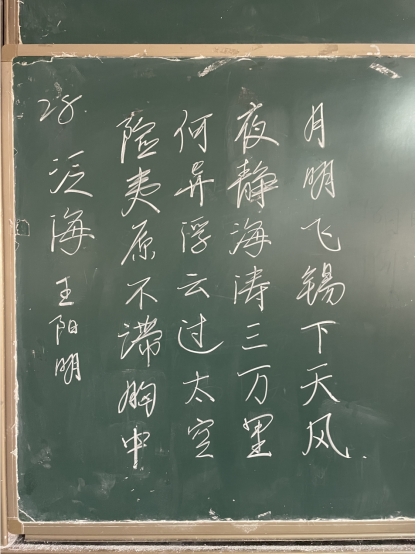 28.
泛海 王阳明
险夷原不滞胸中
何异浮云过太空
夜静海涛三万里
月明飞锡下天风.